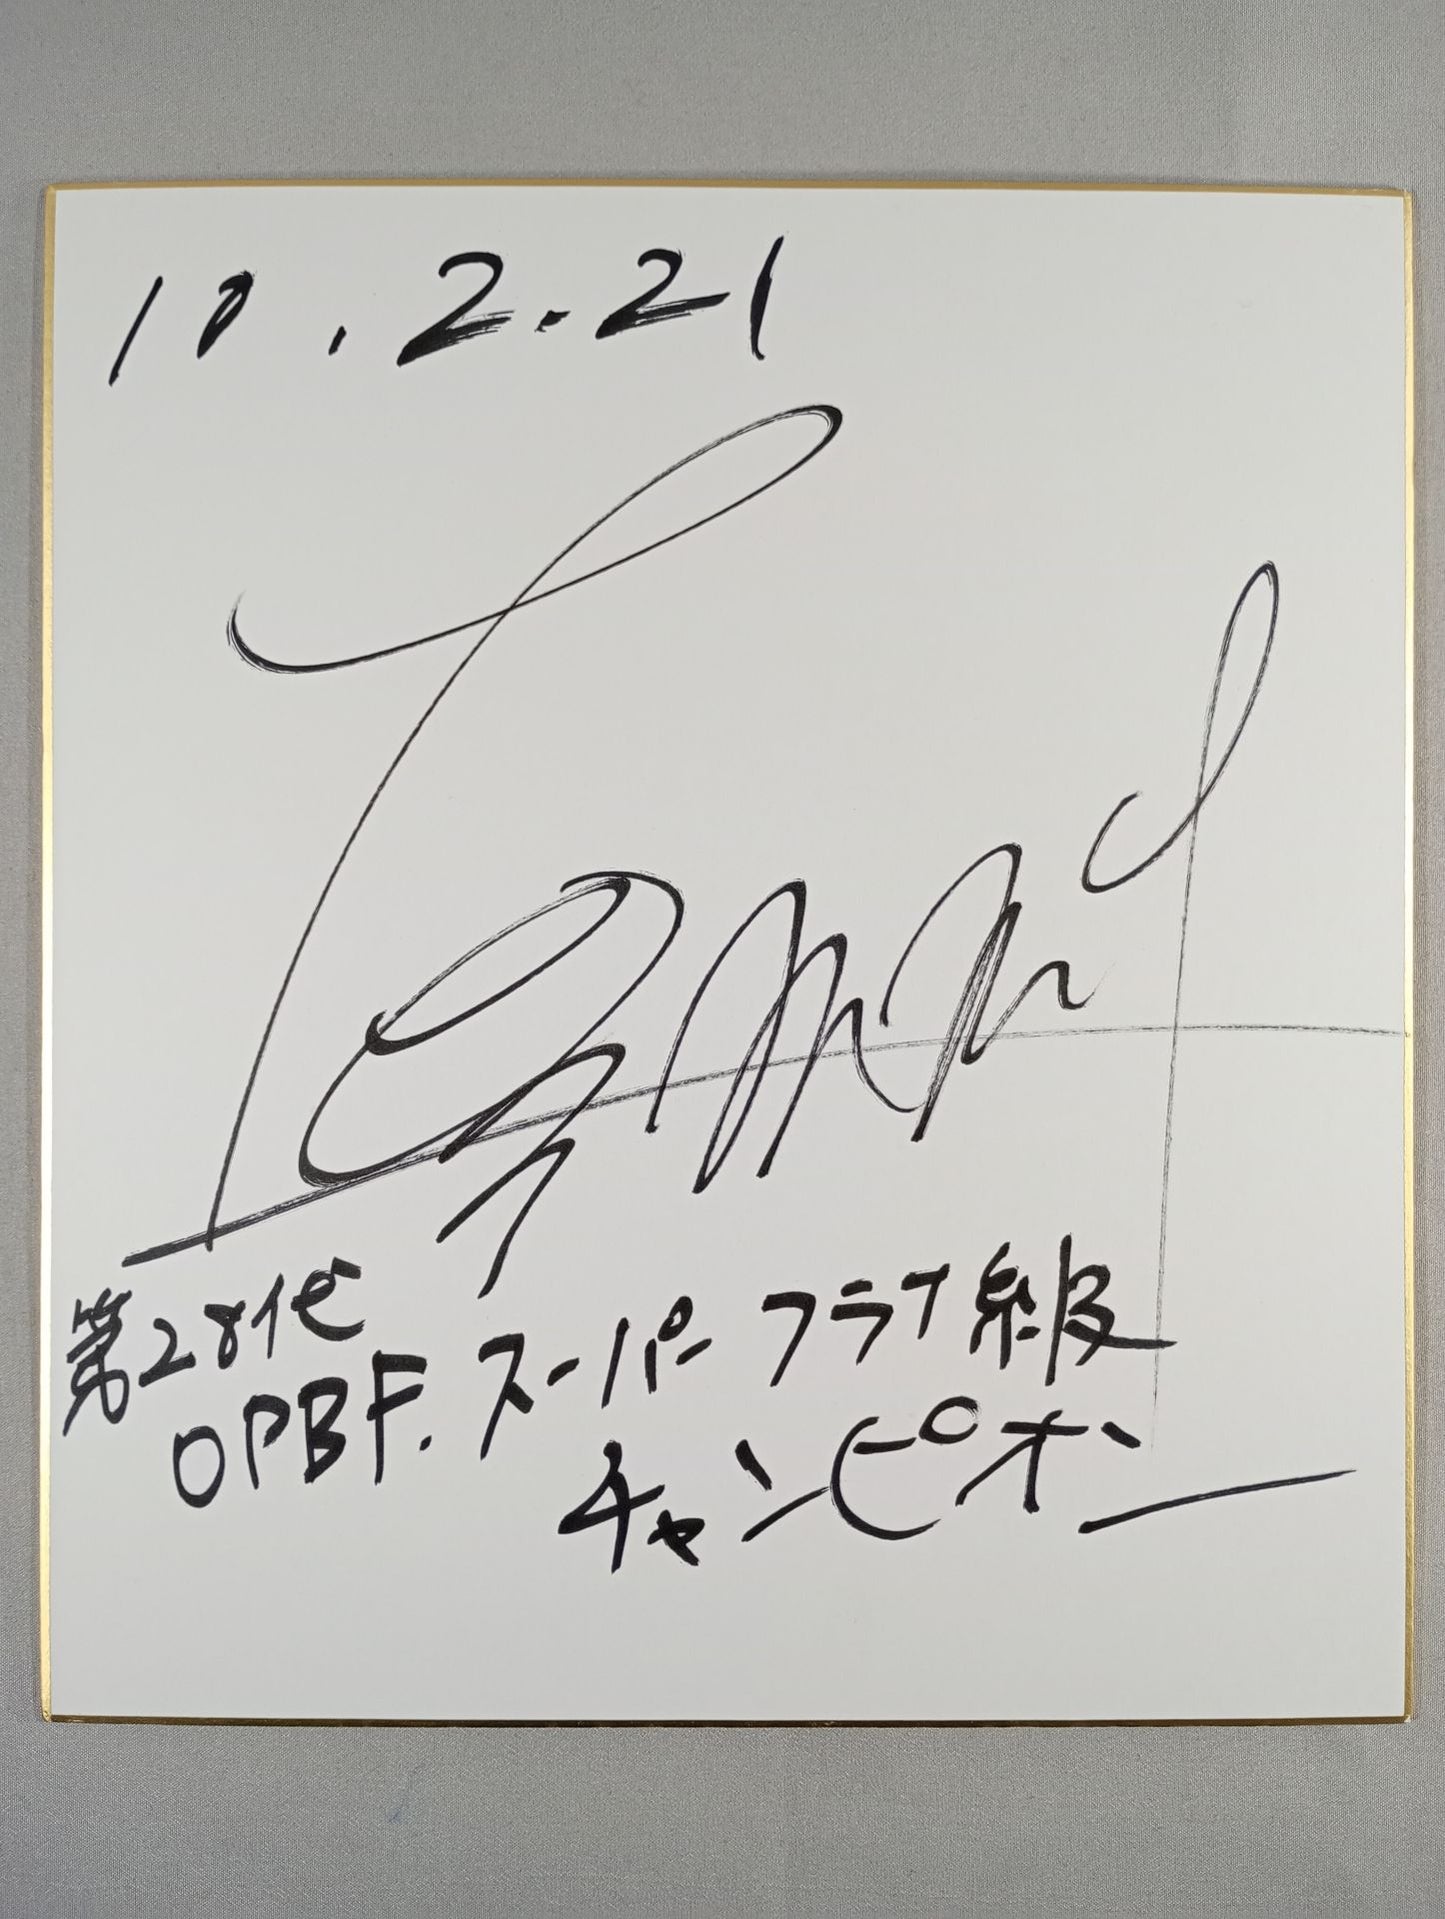 10.2.21
第28代
OPBF.スーパーフライ級
チャンピオン